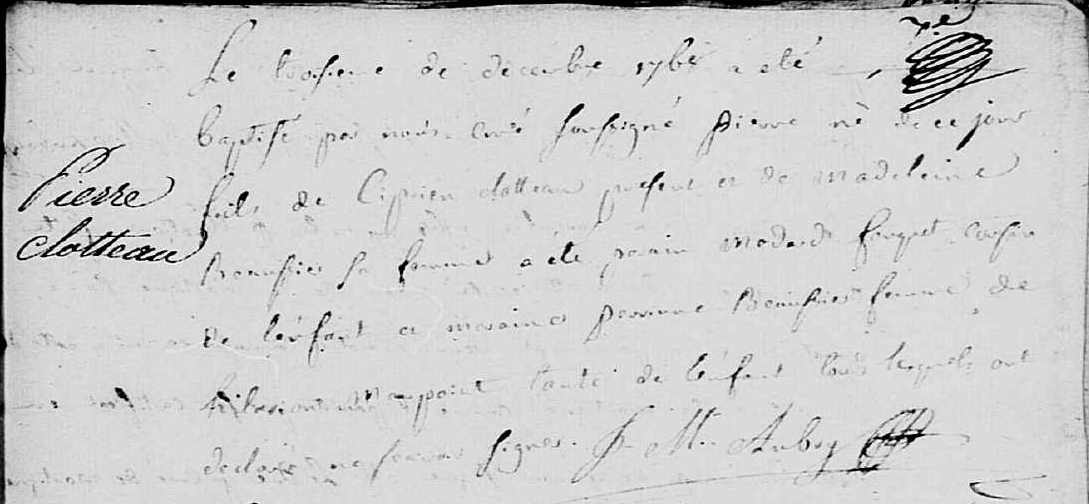 Le troisieme de decembre 1765 a eté
baptisé par nous curé soussigné pierre né de ce jour
Pierre
clotteau
fils de Ciprien clotteau present et de Madeleine
sa femme a eté parain Medard fouquet cousin
de l'enfant et maraine perrinne femme de
Maupoint tante de l'enfant tous lesquels ont
declaré ne scavoir signer. Aubry